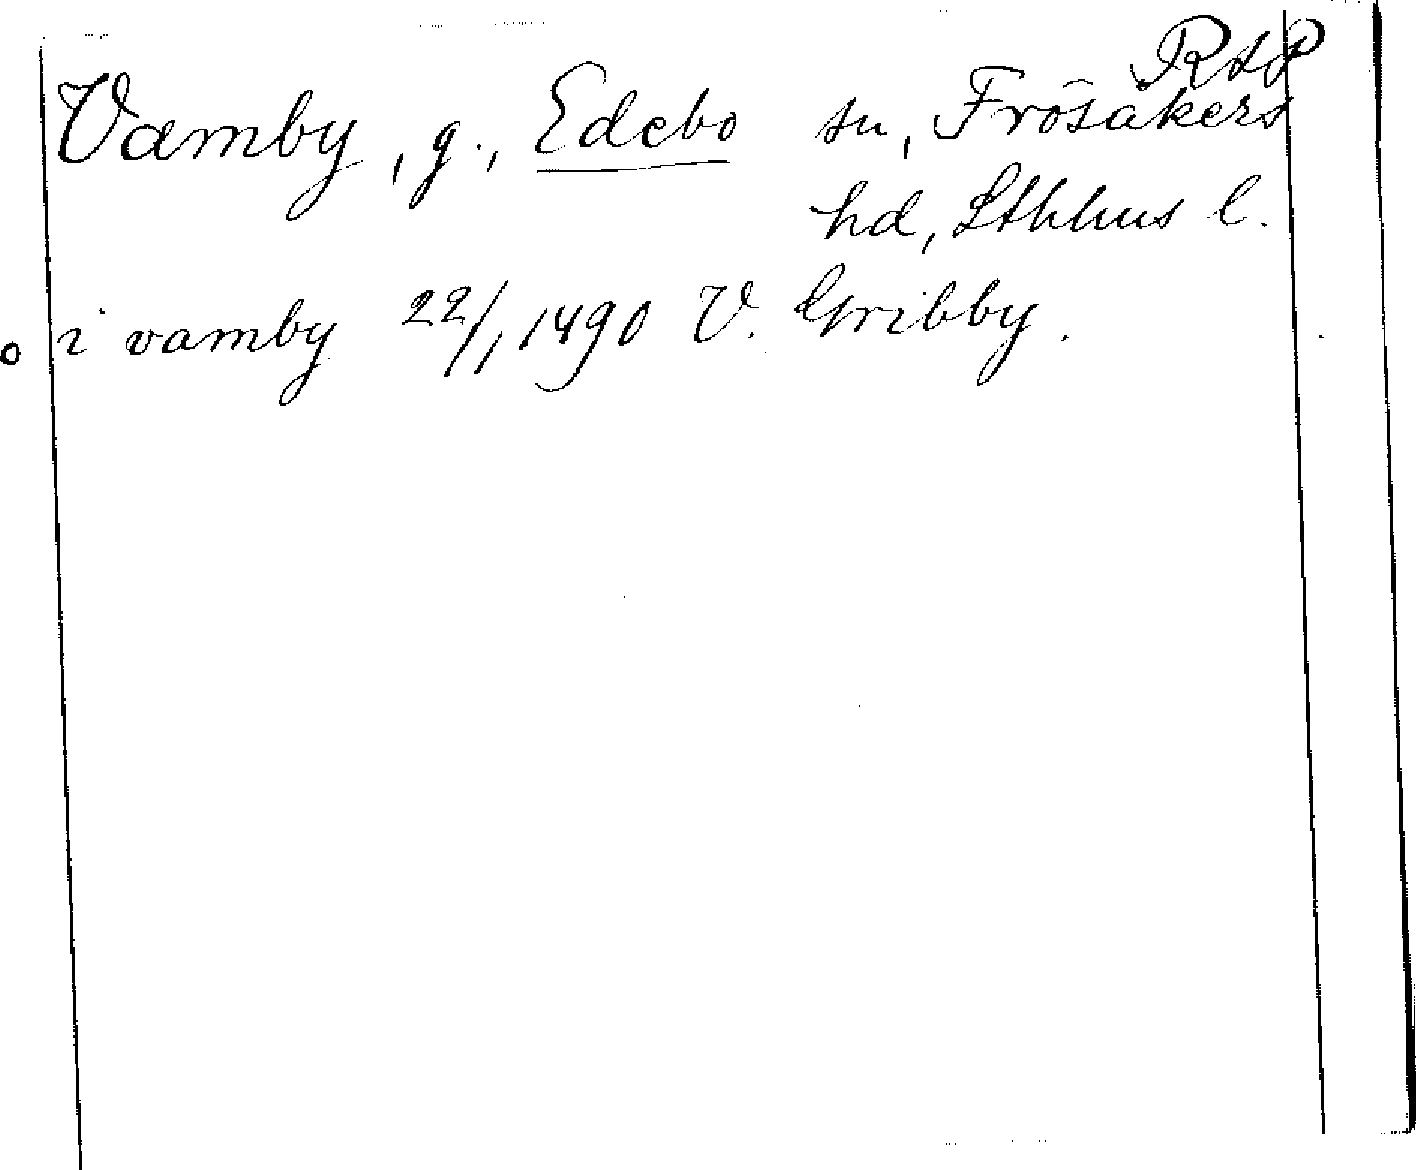 RAP
Vamby, g., Edebo sn, Frösåkers
hd, Sthlms l.
i vamby 22/1 1490 V. Gribby.